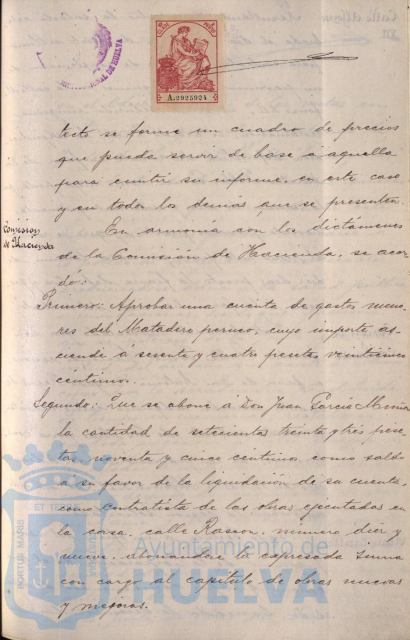 A.2925924
tecto se forme un cuadro de precios
que pueda servir de base á aquella
para emitir su informe, en este caso
y en todos los demás que se presenten.
Comision
de Hacienda
En armonía con los dictámenes
de la Comisión de Hacienda, se acor-
dó:
Primero: Aprobar una cuenta de gastos meno-
res del Matadero perruno, cuyo importe as-
ciende á sesenta y cuatro pesetas veinticinco
céntimos.
Segundo: Que se abone á Don Juan García
la cantidad de setecientas treinta y tres pese-
tas noventa y cinco céntimos como saldo
á su favor de la liquidación de su cuenta,
como contratista de las obras ejecutadas en
la casa, calle Rascon, número diez y
nueve, abonandose la expresada suma
con cargo al capítulo de obras nuevas
y mejoras.
PORTUS MARIS
Ayuntamiento de
HUELVA